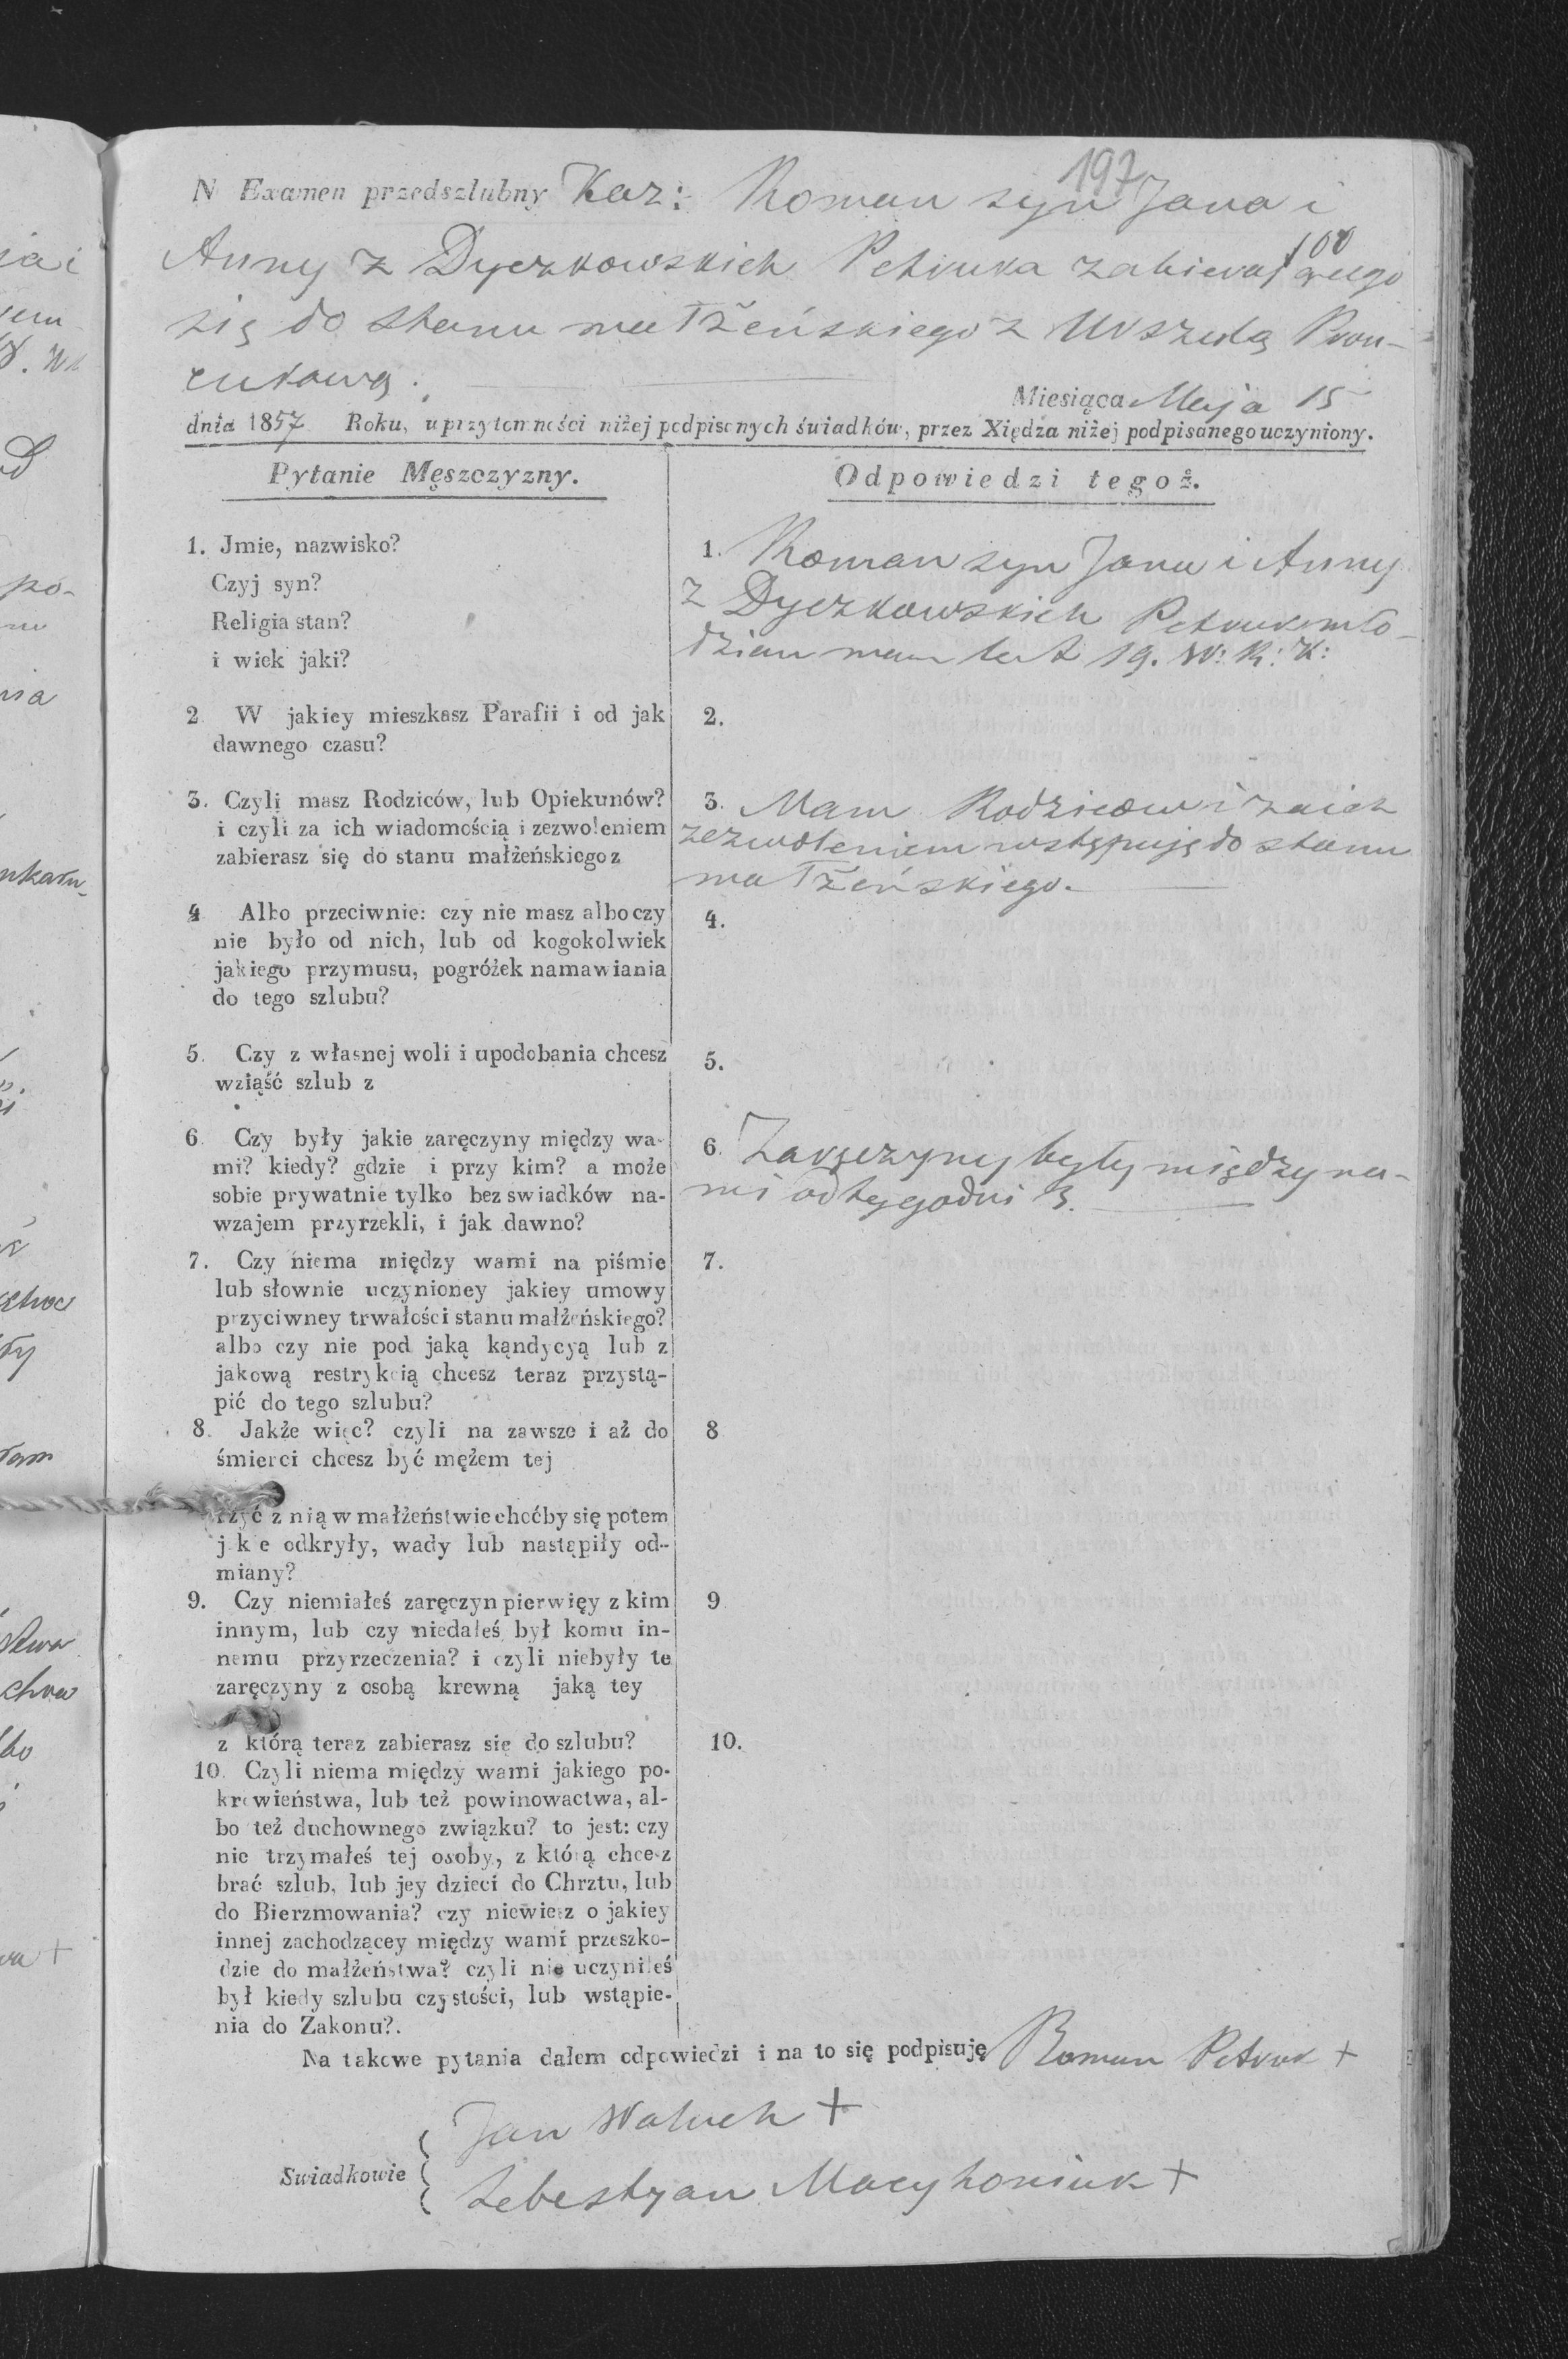 197
N Examen przedszlubny Kaz: Roman syn Jana i
100
Anny z Dyczkowskich Petruka zabierającego
się do stanu małżeńskiego z Urszulą
Miesiąca Maja 15
dnia 1857 Roku, u przytomności niżej podpisanych świadków, przez Xiędza niżej podpisanego uczyniony.
Pytanie Męszczyzny.
1. Jmie, nazwisko?
Czyj syn?
Religia stan?
i wiek jaki?
2 W jakiey mieszkasz Parafii i od jak
dawnego czasu?
3. Czyli masz Rodziców, lub Opiekunów?
i czyli za ich wiadomością i zezwoleniem
zabierasz się do stanu małżeńskiego z
4 Albo przeciwnie: czy nie masz albo czy
nie było od nich, lub od kogokolwiek
jakiego przymusu, pogróżek namawiania
do tego szlubu?
5. Czy z własnej woli i upodobania chcesz
wziąść szlub z
6 Czy były jakie zaręczyny między wa-
mi? kiedy? gdzie i przy kim? a może
sobie prywatnie tylko bez swiadków na-
wzajem przyrzekli, i jak dawno?
7. Czy niema między wami na piśmie
lub słownie uczynioney jakiey umowy
przyciwney trwałości stanu małżeńskiego?
albo czy nie pod jaką kąndycyą lub z
jakową restrykcią chcesz teraz przystą-
pić do tego szlubu?
8. Jakże więc? czyli na zawsze i aż do
śmierci chcesz być mężem tej
żyć z nią w małżeństwie choćby się potem
jakie odkryły, wady lub nastąpiły od-
miany?
9. Czy niemiałeś zaręczyn pierwięy z kim
innym, lub czy niedałeś był komu in-
nemu przyrzeczenia? i czyli niebyły te
zaręczyny z osobą krewną jaką tey
z którą teraz zabierasz się do szlubu?
10. Czyli niema między wami jakiego po-
krewieństwa, lub też powinowactwa, al-
bo też duchownego związku? to jest: czy
nie trzymałeś tej osoby, z którą chcesz
brać szlub, lub jey dzieci do Chrztu, lub
do Bierzmowania? czy niewiesz o jakiey
innej zachodzącey między wami przeszko-
dzie do małżeństwa? czyli nie uczyniłeś
był kiedy szlubu czystości, lub wstąpie-
nia do Zakonu?.
Odpowiedzi tegoż.
1. Roman syn Jana i Anny
z Dyczkowskich Petruk mło-
dzian mam lat 19. W: R: K:
2.
3. Mam Rodziców i za ich
zezwoleniem wstępuję do stanu
małżeńskiego.
4.
5.
6. Zaręczyny były między na-
mi od tygodni 3.
7.
8
9
10.
Na takowe pytania dałem odpowiedzi i na to się podpisuję Roman Petruk +
Swiadkowie
Jan Waluch +
Sebestyan Macyhoniuk +